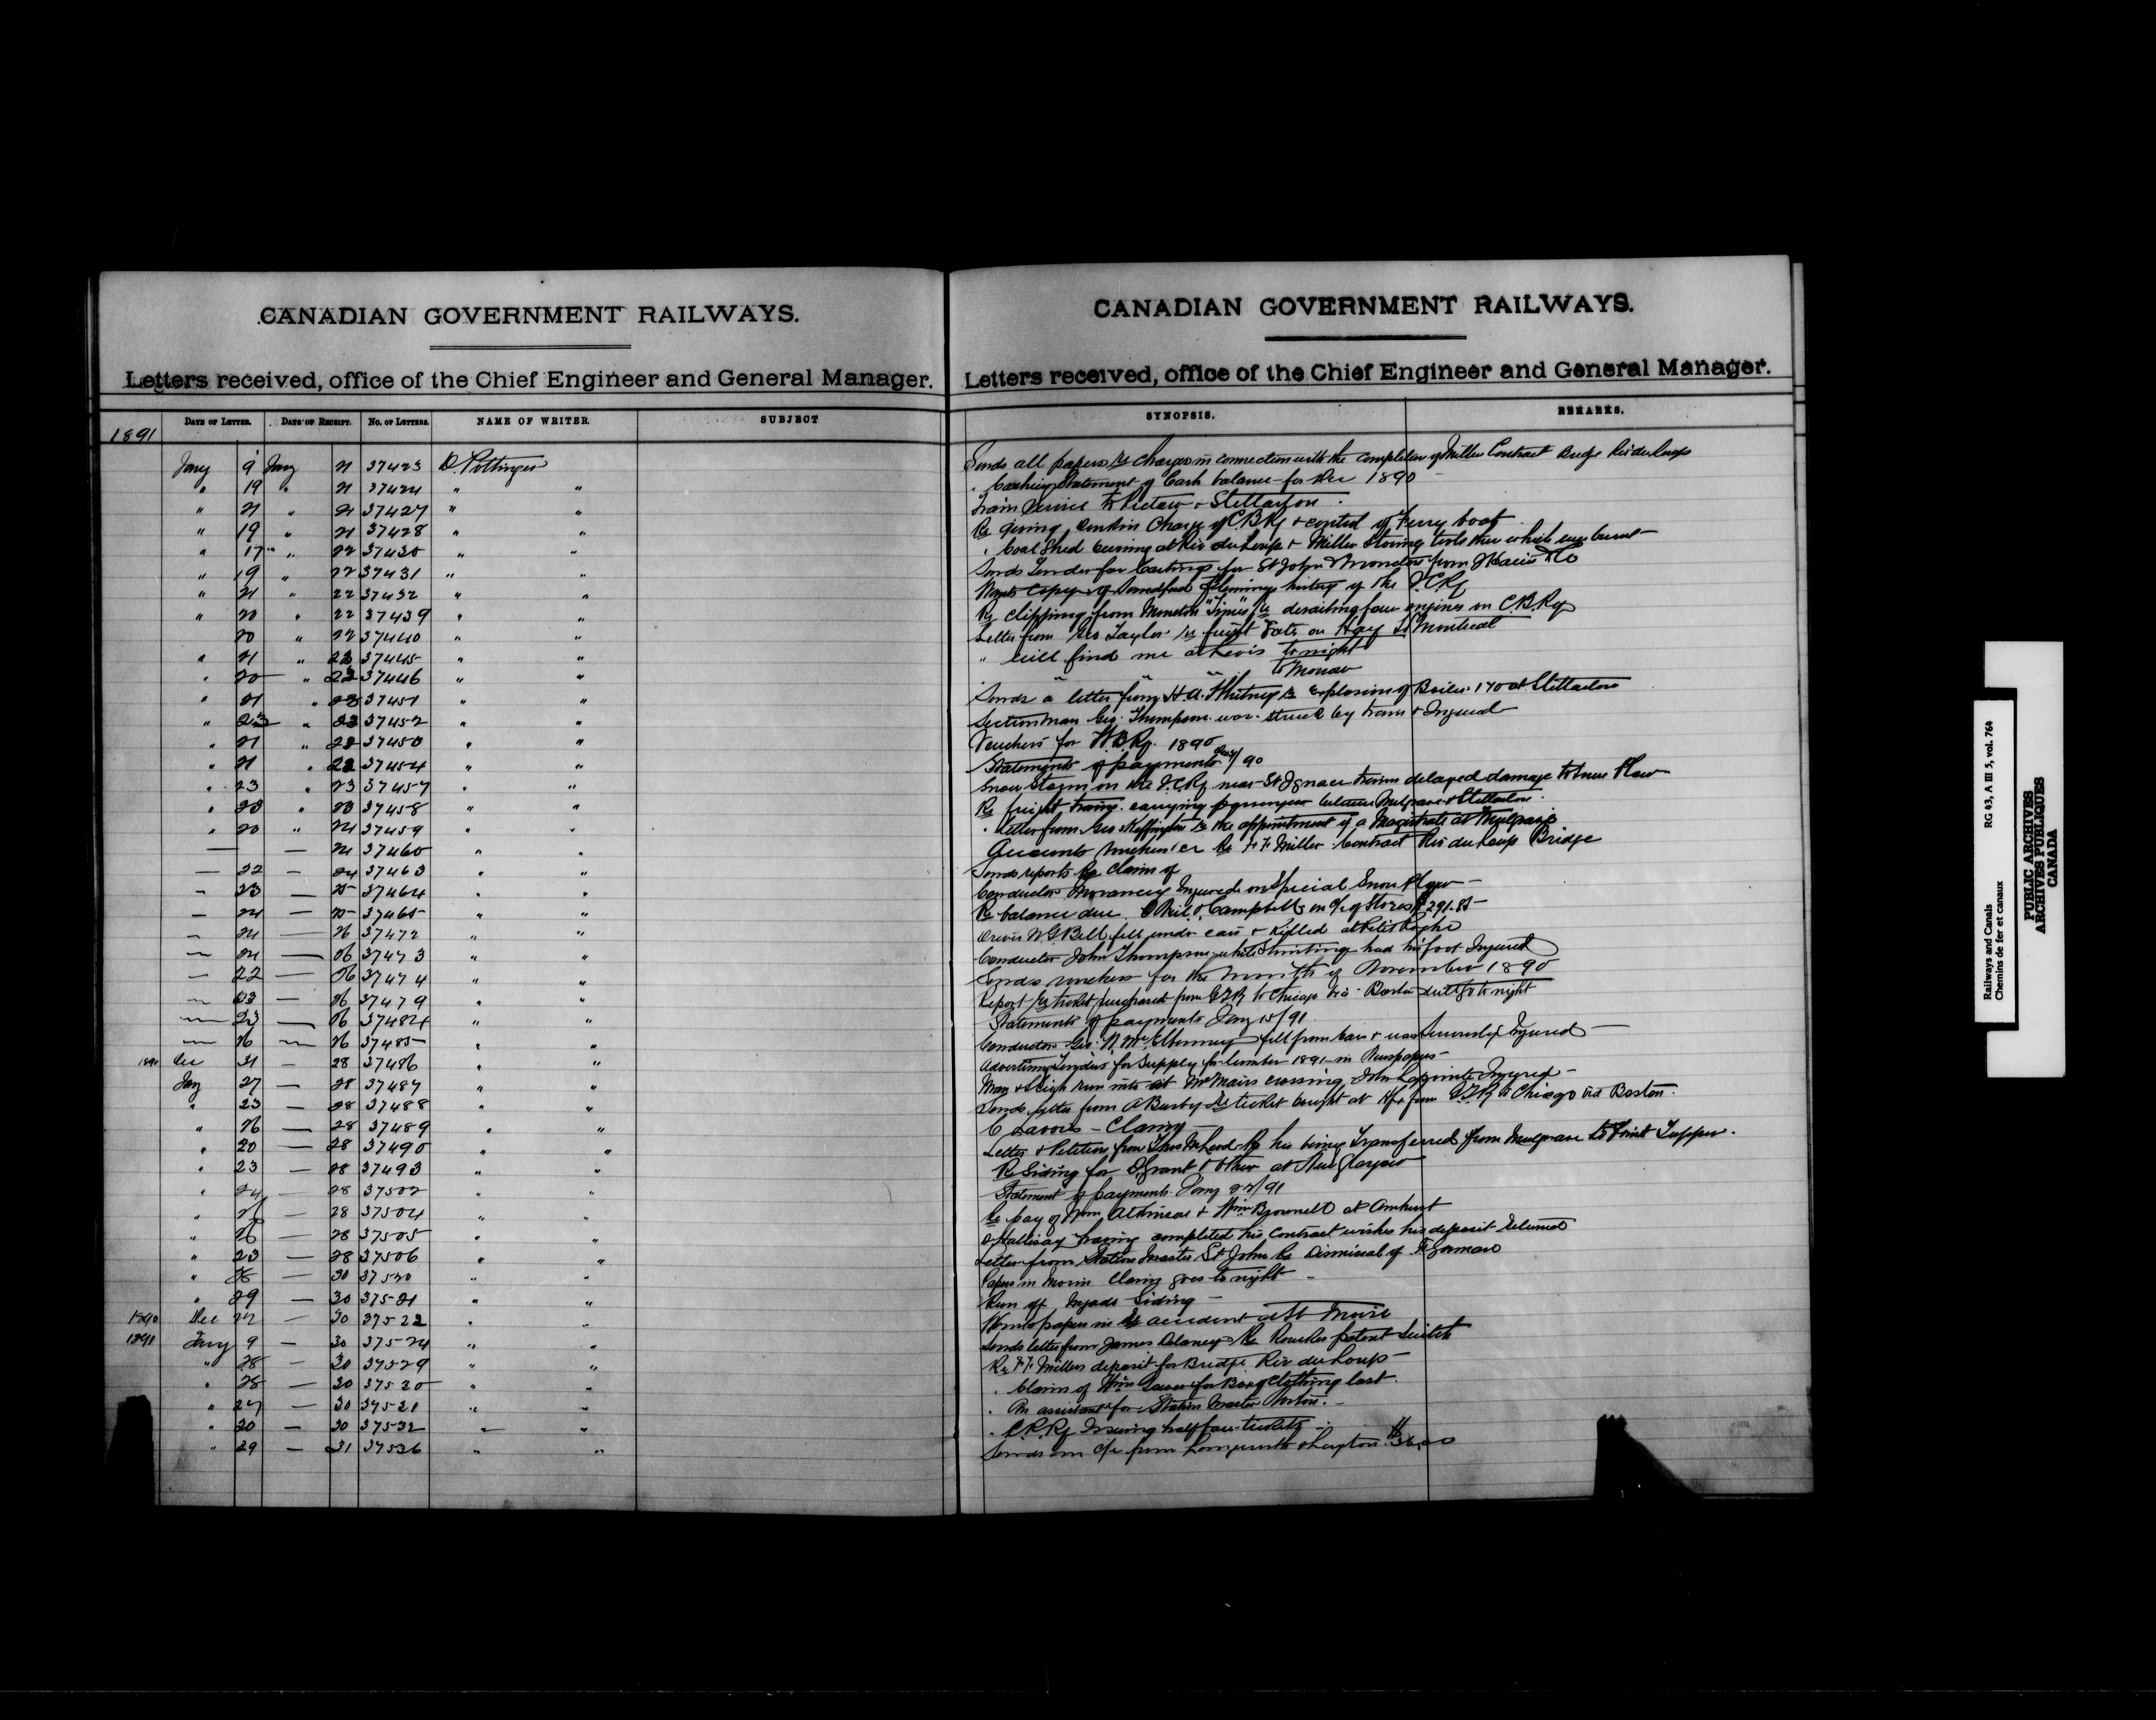 CANADIAN GOVERNMENT RAILWAYS.
Letters received, office of the Chief Engineer and General Manager.
DATE OF LETTER. DATE OF RECEIPT. No. OF LETTERS. NAME OF WRITER. SUBJECT
1891
Jany 9 Jany 21 37423 D. Pottinger
" 19 " 21 37424 " "
" 21 " 21 37427 " "
" 19 " 21 37428 " "
" 17 " 22 37430 " "
" 19 " 22 37431 " "
" 21 " 22 37432 " "
" 20 " 22 37439 " "
20 " 22 37440 " "
" 21 " 23 37445 " "
" 20 " 23 37446 " "
" 21 " 23 37451 " "
" 23 " 23 37452 " "
" 21 " 23 37450 " "
" 21 " 23 37454 " "
" 23 " 23 37457 " "
" 20 " 23 37458 " "
" 20 " 24 37459 " "
— — 24 37460 " "
— 22 — 24 37463 " "
— 23 — 25 37464 " "
— 24 — 25 37465 " "
— 24 — 26 37472 " "
— 24 — 26 37473 " "
— 22 — 26 37474 " "
— 23 — 26 37479 " "
— 23 — 26 37484 " "
— 26 — 26 37485 " "
1890 Dec 31 — 28 37486 " "
Jany 27 — 28 37487 " "
" 23 — 28 37488 " "
" 26 — 28 37489 " "
" 20 — 28 37490 " "
" 23 — 28 37493 " "
" 24 — 28 37502 " "
" 26 — 28 37504 " "
" 26 — 28 37505 " "
" 23 — 28 37506 " "
" 28 — 30 37520 " "
" 29 — 30 37521 " "
1890 Dec 22 — 30 37522 " "
1891 Jany 9 — 30 37524 " "
" 28 — 30 37529 " "
" 28 — 30 37530 " "
" 27 — 30 37531 " "
" 20 — 30 37532 " "
" 29 — 31 37536 " "
CANADIAN GOVERNMENT RAILWAYS.
Letters received, office of the Chief Engineer and General Manager.
SYNOPSIS. REMARKS.
Sends all papers Re Charges in connection with the completion of Miller Contract Bridge Riv du Loup
" Cashiers Statement of Cash balance for Dec 1890
Train Service to Pictou & Stellarton
Re giving Donkin Charge of C.B.Ry & control of Ferry boat
" Coal Shed burning at Riv du Loup & Miller Storing tools there which were burnt
Sends Tender for Castings for St John & Moncton from J Harris & Co
Wants copy of Sandford Flemings history of the I.C.Ry
Re Clipping from Moncton "Times" Re derailing four engines on C.B.Ry
Letter from Geo Taylor re freight rate on Hay to Montreal
" will find me at Levis to night
" " " to Morrow
Sends a letter from H.A. Whitney Re Explosion of Boiler 170 at Stellarton
Sectionman Geo. Thompson was struck by train & Injured
Vouchers for W.B.Ry. 1890
Statements of payments /90
Snow Storm on the I.C.Ry near St Ignace trains delayed damage to snow Plow
Re freight trains carrying passengers between Mulgrave & Stellarton
" Letter from Geo Skeffington Re the appointment of a Magistrate at Mulgrave
Accounts Re F.F. Miller Contract Riv du Loup Bridge
Sends reports Re Claims of
Conductor Morancy Injured on Special Snow Plow
Re balance due O'Neil & Campbells on a/c of Stores $291.85
Driver W.G. Bell fell under cars & Killed at Petit Roche
Conductor John Thompson while Shunting had his foot Injured
Sends vouchers for the month of November 1890
Report Re ticket purchased from GTR to Chicago via Boston will go to night
Statements of payments Jany 15/91
Conductor Geo. N. McElhenney fell from Cars & was Seriously Injured
Advertising Tenders for Supply for lumber 1891 in Newspapers
Man & Sleigh run into at McNairs crossing, John Lapointe Injured
Sends letter from A Busby Re ticket bought at Hfx from G.T.R to Chicago via Boston.
C Lavoie — Claim
Letter & Petition from Thos McLeod Re his being Transferred from Mulgrave to Point Tupper.
Re Siding for D. Grant & Other at New Glasgow
Statement of payments Jany 22/91
Re pay of Wm Atkinson & Wm Brownell at Amherst
D Hallisay having completed his Contract wishes his deposit returned
Letter from Station Master St John Re Dismissal of F Gorman
Papers in Morin Claim goes to night
Run off Siding
Wants papers in Re accident at St Moise
Sends letter from James Delaney Re Rourkes patent Switch
Re F.F. Millers deposit for Bridge Riv du Loup
" Claim of Wm for Box of Clothing lost.
" An assistant for Station Master Norton.
" C.P.Ry Issuing half fare tickets
Sends an a/c from Longworth & Layton $36.00
Railways and Canals RG 43, A III 5, vol. 764
Chemins de fer et canaux
PUBLIC ARCHIVES
ARCHIVES PUBLIQUES
CANADA